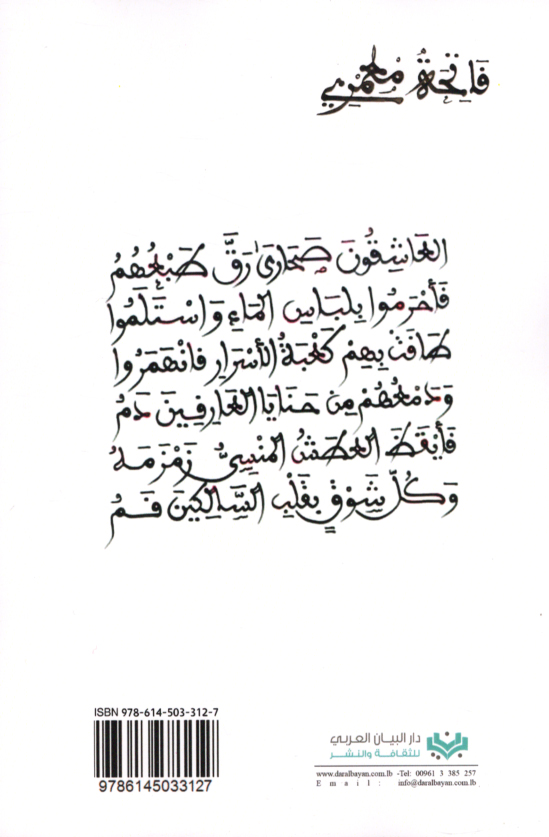 فَاتِحَة مُعمّري
العَاشِقُونَ صَحَارَىٰ رَقَّ طَبْعُهُمُ
فَأَحْرَمُوا بِلِبَاسِ المَاءِ وَاسْتَلَمُوا
طَافَتْ بِهِمْ كَعْبَةُ الأَسْرَارِ فَانْهَمَرُوا
وَدَمْعُهُمْ مِن حَنَايَا العَارِفِينَ دَمُ
فَأَيْقَظَ العَطَشُ المَنْسِيُّ زَمْزَمَهُ
وَكُلُّ شَوْقٍ بِقَلْبِ السَّالِكِينَ فَمُ
ISBN 978-614-503-312-7
9786145033127
دار البيان العربي
للثقافة والنشر
www.daralbayan.com.lb -Tel: 00961 3 385 257
Email: info@daralbayan.com.lb